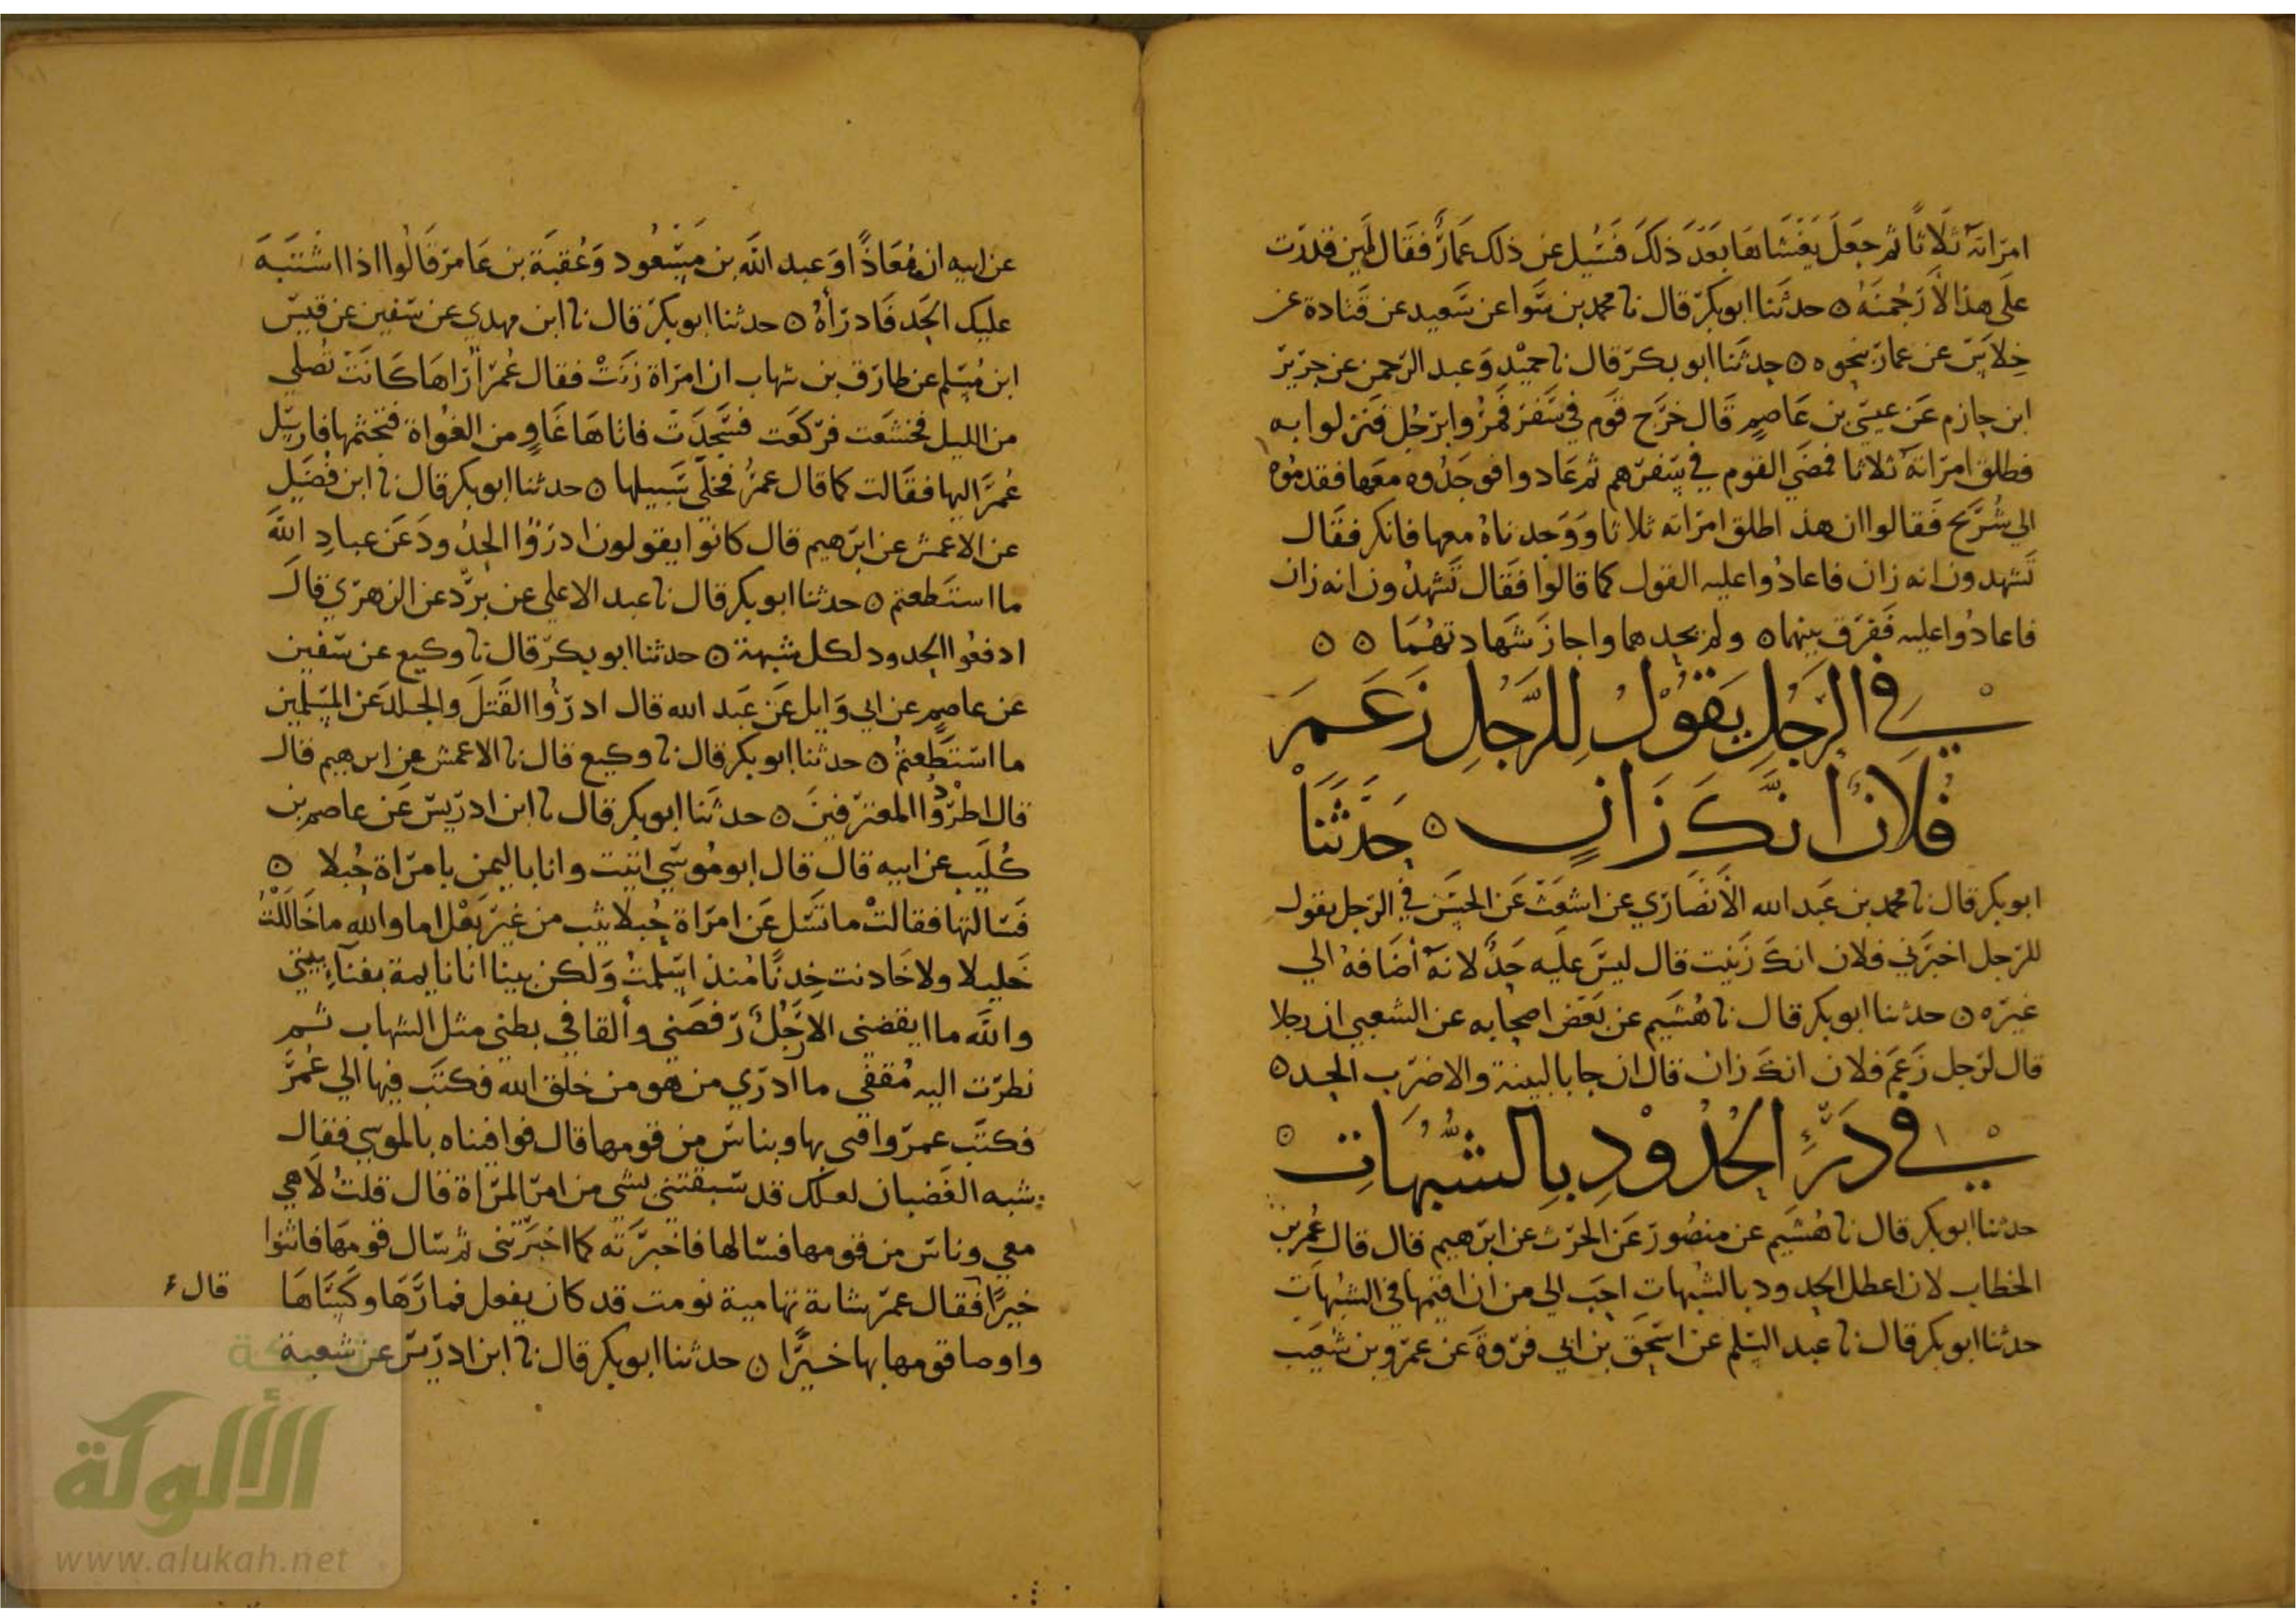 امراته ثلاثا ثم جعل يغشاها بعد ذلك فسئل عن ذلك عمار فقال لين قدرت
على هذا لارجمنه ه حدثنا ابو بكر قال نا محمد بن سوا عن سعيد عن قتادة عن
خلاس عن عمار بنحوه ه حدثنا ابو بكر قال نا حميد وعبد الرحمن عن جرير
ابن حازم عن عيسى بن عاصم قال خرج قوم في سفر فمروا برجل فنزلوا به
فطلق امراته ثلاثا فمضي القوم في سفرهم ثم عادوا فوجدوه معها فقدموه
الي شريح فقالوا ان هذا طلق امراته ثلاثا ووجدناه معها فانكر فقال
تشهدون انه زان فاعادوا عليه القول كما قالوا فقال تشهدون انه زان
فاعادوا عليه ففرق بينهما ه ولم يحدهما واجاز شهادتهما ه ه
في الرجل يقول للرجل زعم
فلان انك زان ه حدثنا
ابو بكر قال نا محمد بن عبد الله الانصاري عن اشعث عن الحسن في الرجل يقول
للرجل اخبرني فلان انك زنيت قال ليس عليه حد لانه اضافه الي
غيره ه حدثنا ابو بكر قال نا هشيم عن بعض اصحابه عن الشعبي ان رجلا
قال لرجل زعم فلان انك زان قال ان جا بالبينة والا ضرب الحد ه
في درء الحدود بالشبهات ه
حدثنا ابو بكر قال نا هشيم عن منصور عن الحرث عن ابرهيم قال قال عمر بن
الخطاب لان اعطل الحدود بالشبهات احب الي من ان اقيمها في الشبهات
حدثنا ابو بكر قال نا عبد السلم عن اسحق بن ابي فروة عن عمرو بن شعيب
عن ابيه ان معاذا وعبد الله بن مسعود وعقبة بن عامر قالوا اذا اشتبه
عليك الحد فادراه ه حدثنا ابو بكر قال نا ابن مهدي عن سفين عن قيس
ابن مسلم عن طارق بن شهاب ان امراة زنت فقال عمر اراها كانت تصلي
من الليل فخشعت فركعت فسجدت فاتاها غاو من الغواة فتجثمها فارسل
عمر اليها فقالت كما قال عمر فخلى سبيلها ه حدثنا ابو بكر قال نا ابن فضيل
عن الاعمش عن ابرهيم قال كانوا يقولون ادرؤا الحدود عن عباد الله
ما استطعتم ه حدثنا ابو بكر قال نا عبد الاعلي عن برد عن الزهري قال
ادفعوا الحدود لكل شبهة ه حدثنا ابو بكر قال نا وكيع عن سفين
عن عاصم عن ابي وايل عن عبد الله قال ادرؤا القتل والجلد عن المسلمين
ما استطعتم ه حدثنا ابو بكر قال نا وكيع قال نا الاعمش عن ابرهيم قال
قال اطردوا المعترفين ه حدثنا ابو بكر قال نا ابن ادريس عن عاصم بن
كليب عن ابيه قال قال ابو موسي اتيت وانا باليمن بامراة حبلا ه
فسالتها فقالت ما تسل عن امراة حبلا ثيب من غير بعل اما والله ما خاللت
خليلا ولا خادنت خدنا منذ اسلمت ولكن بينا انا نايمة بفناء بيتي
والله ما ايقضني الا رجل رفصني والقا في بطني مثل الشهاب ثم
نظرت اليه مقفى ما ادري من هو من خلق الله فكتب فيها الي عمر
فكتب عمر وافني بها وبناس من قومها قال فوافيناه بالموسي فقال
شبه الغضبان لعلك قد سبقتني بشي من امر المراة قال قلت لا هي
معي وناس من قومها فسالها فاخبرته كما اخبرتني ثم سال قومها فاثنوا
خيرا فقال عمر شابة تهامية نومت قد كان يفعل فمارها وكساها
واوصا قومها بها خيرا ه حدثنا ابو بكر قال نا ابن ادريس عن شعبة
قال
شبكة
الألوكة
www.alukah.net